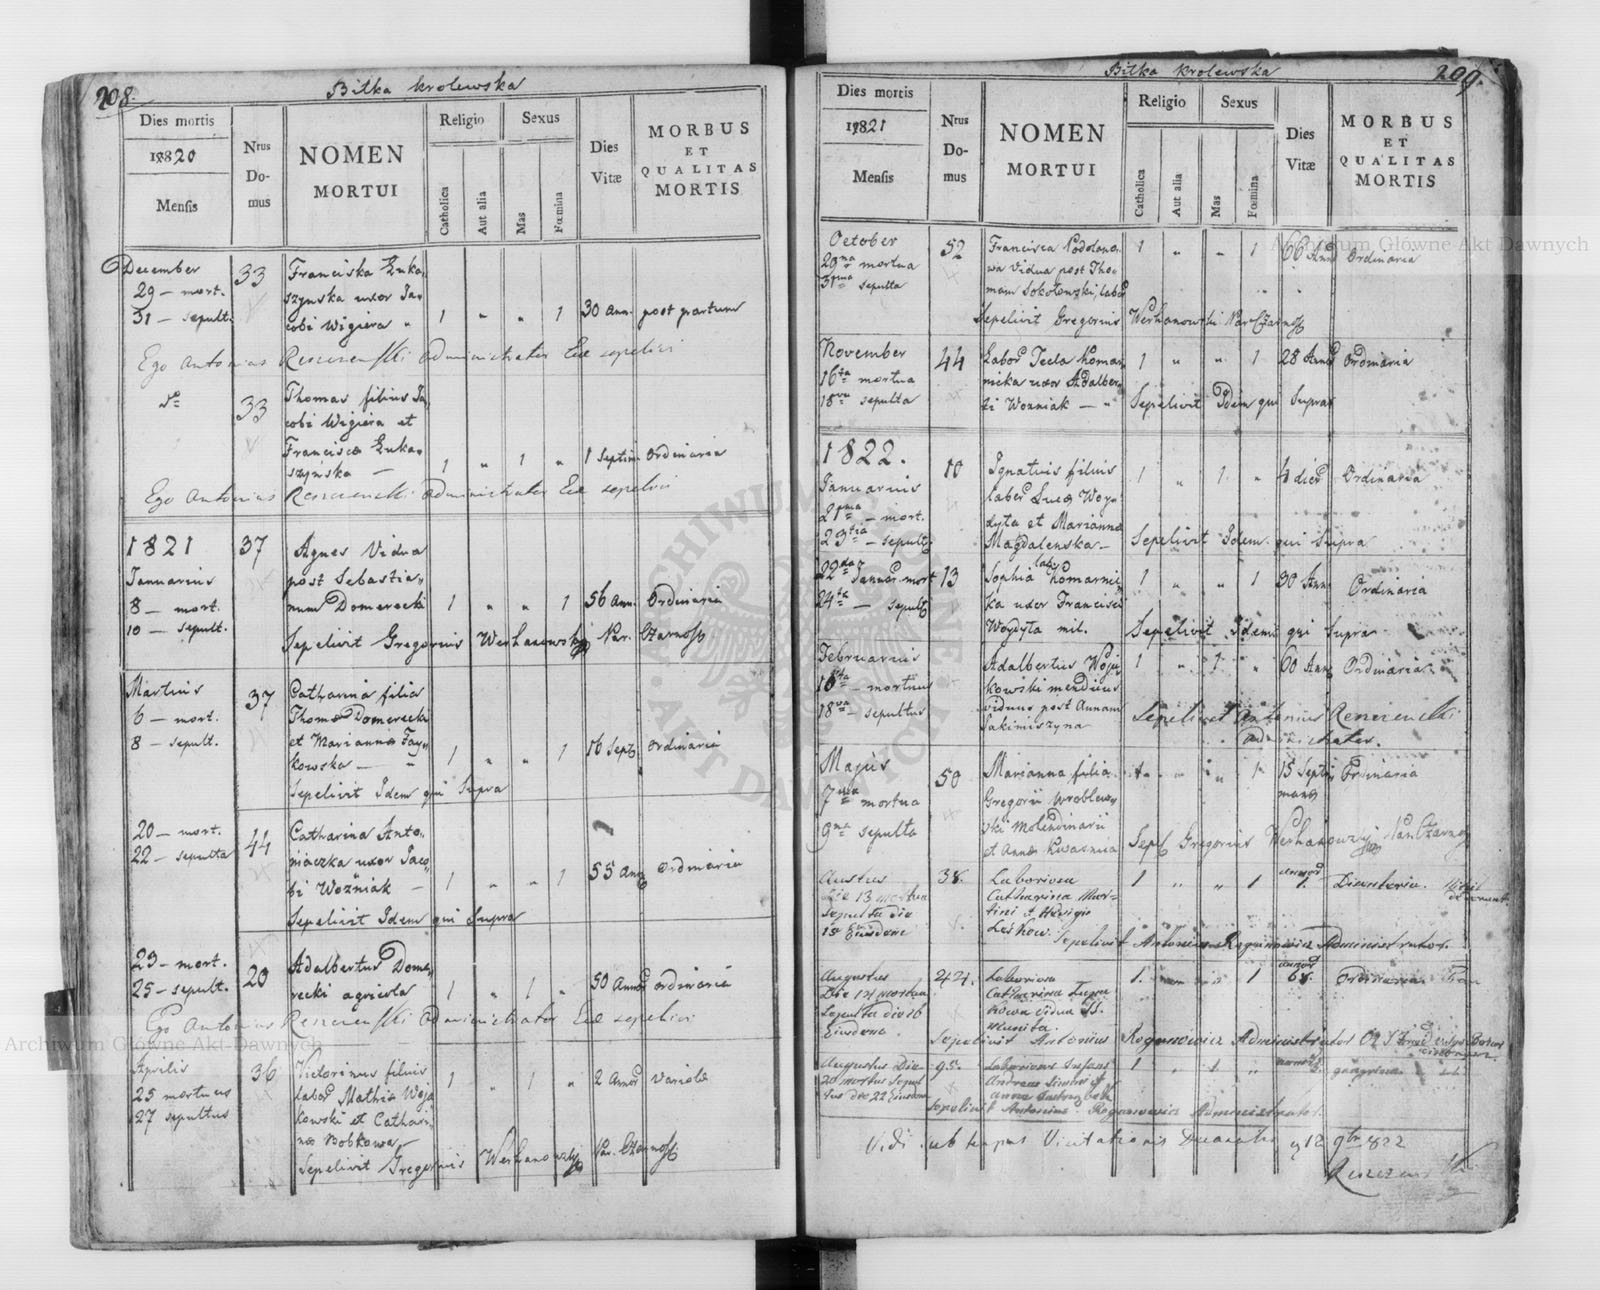 208.
Bilka krolewska
Dies mortis
1820
Mensis
Nrus
Do-
mus
NOMEN
MORTUI
Religio
Catholica
Aut alia
Sexus
Mas
Fœmina
Dies
Vitæ
MORBUS
ET
QUALITAS
MORTIS
December
29 – mort.
31 – sepult.
33
Franciska Łuka
szynska uxor Ja
cobi Wigiera "
1 " " 1
30 Ann.
post partum
Ego Antonius Administrator Ecc sepelivi
33
Thomas filius Ja
cobi Wigiera et
Francisca Łuka
szynska –
1 " 1 "
1 Septim
Ordinaria
Ego Antonius Administrator Ecc sepelivi
1821
Januarius
8 – mort.
10 – sepult.
37
Agnes Vidua
post Sebastia
num Domerecki
1 " " 1
56 Ann.
Ordinaria
Sepelivit Gregorius Werhanowski Par.
Martius
6 – mort.
8 – sepult.
37
Catharina filia
Thoma Domerecki
et Marianna Fay
kowska – "
1 " " 1
16 Sept
ordinaria
Sepelivit Idem qui Supra
20 – mort.
22 – sepulta
44
Catharina Anto
niaczka uxor Jaco
bi Wozniak –
1 " " 1
55 Ann
ordinaria
Sepelivit Idem qui Supra
23 – mort.
25 – sepult.
20
Adalbertus Dome
recki agricola
1 " 1 "
50 Annor
ordinaria
Ego Antonius Administrator Ecc sepelivi
Aprilis
25 mortuus
27 sepultus
36
Victorinus filius
labor Mathia Woj
kowski et Cathari
na Bobkowa
1 " 1 "
2 Annor
Variola
Sepelivit Gregorius Werhanowski Par.
209.
Bilka krolewska
Dies mortis
1821
Mensis
Nrus
Do-
mus
NOMEN
MORTUI
Religio
Catholica
Aut alia
Sexus
Mas
Fœmina
Dies
Vitæ
MORBUS
ET
QUALITAS
MORTIS
October
29na mortua
31ma sepulta
52
Francisca
wa Vidua post Tho
mam Sokołowski, labor
1 " " 1
66 Ann
Ordinaria
Sepelivit Gregorius Werhanowski
November
16ta mortua
18va sepulta
44
Labor Tecla Komar
nicka uxor Adalber
ti Wozniak – "
1 " " 1
28 Annor
Ordinaria
Sepelivit Idem qui Supra
1822.
Januarius
21ma – mort.
23tia – sepult
10
Ignatius filius
labor Luca Woy
dyta et Marianna
Magdalenska –
1 " 1 "
4 dier
Ordinaria
Sepelivit Idem qui Supra
22da Januar mort
24ta – sepult
13
Sophia Komarnic
ka uxor Francisci
Woydyta mil.
1 " " 1
30 Ann
Ordinaria
Sepelivit Idem qui Supra
Februarius
16ta – mortuus
18va – sepultus
Adalbertus Woj
kowski mendicus
viduus post Annam
Jakimiszyna
1 " 1 "
60 Ann
Ordinaria
Sepelivit Antonius
Administrator.
Majus
7ma mortua
9na sepulta
50
Marianna filia
Gregorii Wroblew
ski Molendinarii
et Anna
1 " " 1
15 Septi
mana
Ordinaria
Sepel Gregorius
die 13 mortua
Sepulta die
15 Ejusdem
38.
Laboriosa
Catharina Mar
tini et Hedvigis
Leskow.
1 " " 1
annor
1.
Disenteria.
Sepelivit Antonius Administrator.
Augustus
Die 14 mortua
Sepulta die 16
Ejusdem.
Laboriosa
Catharina
kowa vidua
1. " " 1
annor
68.
Ordinaria
Sepelivit Antonius Administrator
Augustus Die
20 mortus Sepul
tus die 22 Ejusdem
95.
Laboriosus Infans
Andreas
1 " 1 "
Sepelivit Antonius Administrator.
Vidi sub tempus Visitationis Decanalis 12 9bris 822
Archiwum Główne Akt Dawnych
Archiwum Główne Akt Dawnych
ARCHIWUM GŁÓWNE AKT DAWNYCH